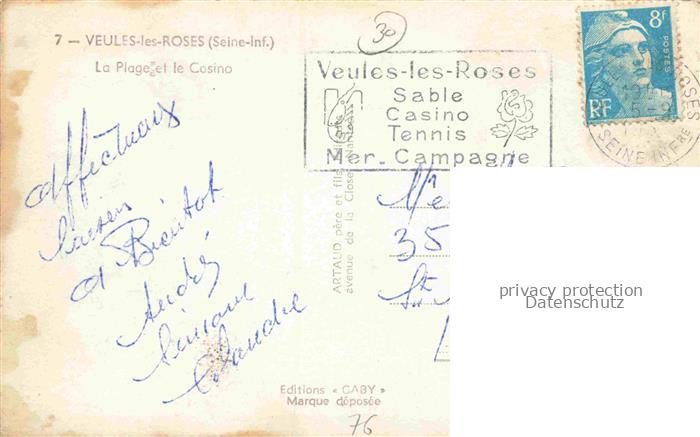 30
8f
POSTES
RF
7 — VEULES-les-ROSES (Seine-Inf.)
La Plage et le Casino
Veules-les-Roses
Sable
Casino
Tennis
Mer - Campagne
SEINE INFRE
affectueux
baisers
a Bientôt
André
Simone
Claudie
ARTAUD père et fils
avenue de la Close
35
privacy protection
Datenschutz
Editions « GABY »
Marque déposée
76